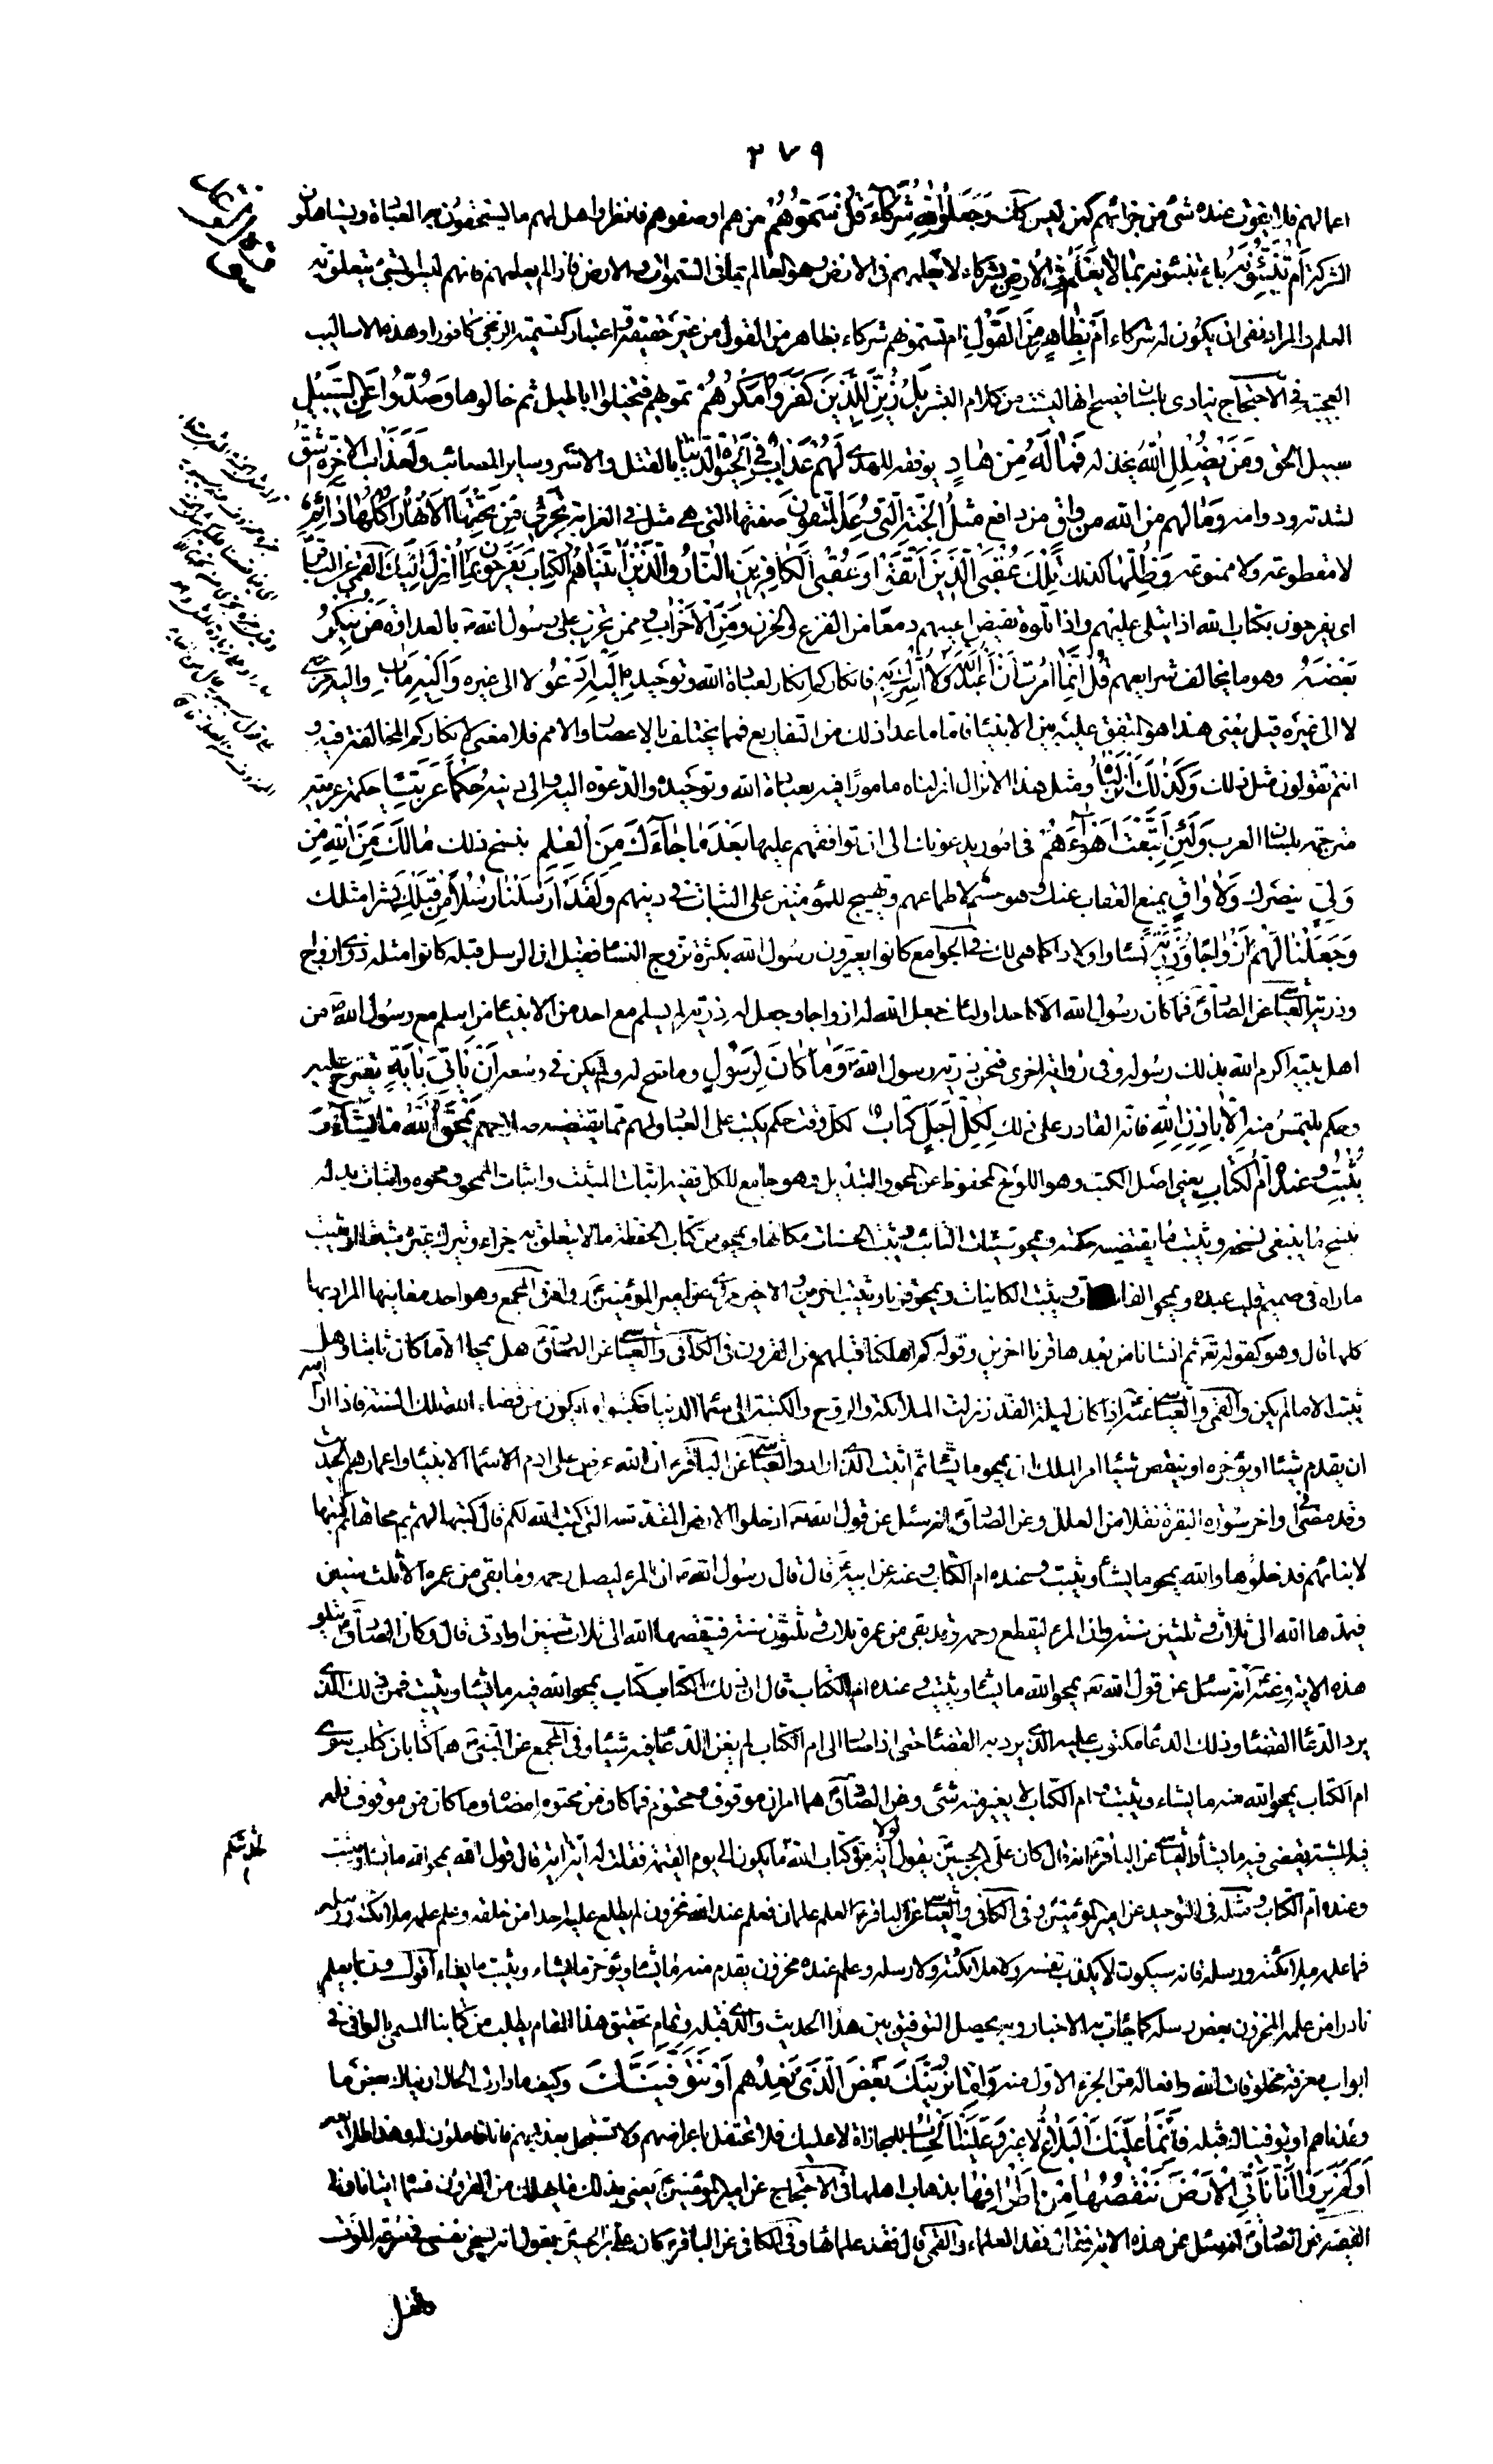 ٢٧٩
اعمالهم فلا يفوت عنده شئ من جزائهم كمن ليس كك وَجَعَلُوا لِلّهِ شُرَكَاءَ قُلْ سَمُّوهُمْ من هم او صفوهم فانظروا هل لهم ما يستحقون به العبادة ويستاهلون
الشركة اَمْ تُنَبِّئُونَهُ بل اتنبئونه بِمَا لَا يَعْلَمُ فِي الْاَرْضِ بشركاء لا يعلمهم في الارض وهو العالم بما في السموات والارض فاذا لم يعلمهم فانهم ليسوا بشئ يتعلق به
العلم والمراد نفى ان يكون له شركاء اَمْ بِظَاهِرٍ مِنَ الْقَوْلِ ام تسمونهم شركاء بظاهر من القول من غير حقيقة واعتبار كتسمية الزنجى كافورا وهذه الاساليب
العجيبة في الاحتجاج ينادى بلسان فصيح انها ليست من كلام البشر بَلْ زُيِّنَ لِلَّذِينَ كَفَرُوا مَكْرُهُمْ تمويههم فتخيلوا اباطيل ثم خالوها وَصُدُّوا عَنِ السَّبِيلِ
سبيل الحق وَمَنْ يُضْلِلِ اللّهُ يخذله فَمَا لَهُ مِنْ هَادٍ يوفقه للهدى لَهُمْ عَذَابٌ فِي الْحَيوةِ الدُّنْيَا بالقتل والاسر وساير المصائب وَلَعَذَابُ الْاخِرَةِ اَشَقُّ
لشدته ودوامه وَمَا لَهُمْ مِنَ اللهِ مِنْ وَاقٍ من دافع مَثَلُ الْجَنَّةِ الَّتِي وُعِدَ الْمُتَّقُونَ صفتها التى هى مثل في الغرابة تَجْرِي مِنْ تَحْتِهَا الْاَنْهَارُ اُكُلُهَا دَائِمٌ
لا مقطوعة ولا ممنوعة وَظِلُّهَا كذلك تِلْكَ عُقْبَى الَّذِينَ اتَّقَوْا وَعُقْبَى الْكَافِرِينَ النَّارُ وَالَّذِينَ اتَيْنَاهُمُ الْكِتَابَ يَفْرَحُونَ بِمَا اُنْزِلَ اِلَيْكَ القمى عن الباقر
اى يفرحون بكتاب الله اذا يتلى عليهم واذا تلوه تفيض اعينهم دمعا من الفزع والحزن وَمِنَ الْاَحْزَابِ وممن تحزب على رسول الله بالعداوة مَنْ يُنْكِرُ
بَعْضَهُ وهو ما يخالف شرايعهم قُلْ اِنَّمَا اُمِرْتُ اَنْ اَعْبُدَ اللّهَ وَلَا اُشْرِكَ بِهِ فانكاركم انكار لعبادة الله وتوحيده اِلَيْهِ اَدْعُو لا الى غيره وَاِلَيْهِ مَابِ واليه مرجعى
لا الى غيره قيل يعنى هذا هو المتفق عليه بين الانبياء فاما ما عدا ذلك من التفاريع فمما يختلف بالاعصار والامم فلا معنى لانكاركم المخالفة فيه و
انتم تقولون مثل ذلك وَكَذلِكَ اَنْزَلْنَاهُ ومثل هذا الانزال انزلناه مامورا فيه بعبادة الله وتوحيده والدعوة اليه والى دينه حُكْمًا عَرَبِيًّا حكمة عربية
مترجمة بلسان العرب وَلَئِنِ اتَّبَعْتَ اَهْوَاءَهُمْ في امور يدعونك الى ان توافقهم عليها بَعْدَ مَا جَاءَكَ مِنَ الْعِلْمِ بنسخ ذلك مَا لَكَ مِنَ اللّهِ مِنْ
وَلِيٍّ ينصرك وَلَا وَاقٍ يمنع العقاب عنك وهو حسم لاطماعهم وتهييج للمؤمنين على الثبات في دينهم وَلَقَدْ اَرْسَلْنَا رُسُلًا مِنْ قَبْلِكَ بشرا مثلك
وَجَعَلْنَا لَهُمْ اَزْوَاجًا وَذُرِّيَّةً نساء واولادا كما هى لك في الجوامع كانوا يعيرون رسول الله بكثرة تزوج النساء فقيل ان الرسل قبله كانوا مثله ذوى ازواج
وذرية والعياشي عن الصادق فما كان رسول الله الا كاحد اولئك جعل الله له ازواجا وجعل له ذرية لم يسلم مع احد من الانبياء من اسلم مع رسول الله من
اهل بيته اكرم الله بذلك رسوله وفي رواية اخرى فنحن ذرية رسول الله وَمَا كَانَ لِرَسُولٍ وما صح له ولم يكن في وسعه اَنْ يَاْتِيَ بِايَةٍ يقترح عليه
وحكم يلتمس منه اِلَّا بِاِذْنِ اللّهِ فانه القادر على ذلك لِكُلِّ اَجَلٍ كِتَابٌ لكل وقت حكم يكتب على العباد ولهم مما يقتضيه صلاحهم يَمْحُو اللّهُ مَا يَشَاءُ وَ
يُثْبِتُ وَعِنْدَهُ اُمُّ الْكِتَابِ يعنى اصل الكتب وهو اللوح المحفوظ عن المحو والتبديل وهو جامع للكل ففيه اثبات المثبت واثبات الممحو ومحوه واثبات بدله
ينسخ ما ينبغى نسخه ويثبت ما يقتضيه حكمته ويمحو سيئات التائب ويثبت الحسنات مكانها ويمحو من كتاب الحفظة ما لا يتعلق به جزاء ويترك غيره مثبتا او يثبت
ما راه في صميم قلب عبده ويمحو الفاسدات ويثبت الكائنات ويمحو قرنا ويثبت اخرين والاخير مروى عن امير المؤمنين وفى المجمع وهو احد معانيها المراد بها
كلها قال وهو كقوله تع ثم انشانا من بعدها قرنا اخرين وقوله كم اهلكنا قبلهم من القرون في الكافى والعياشى عن الصادق هل يمحا الا ما كان ثابتا وهل
يثبت الا ما لم يكن والقمى والعياشى عنه اذا كان ليلة القدر نزلت الملائكة والروح والكتبة الى سماء الدنيا فكتبوا ما يكون من قضاء الله تلك السنة فاذا اراد الله
ان يقدم شيئا او يؤخره او ينقص شيئا امر الملك ان يمحو ما يشاء ثم اثبت الذى اراد والعياشى عن الباقر ان الله عرض على ادم الاسماء الانبياء واعمارهم الحديث
وقد مضى في اواخر سورة البقرة نقلا من العلل وعن الصادق انه سئل عن قول الله ادخلوا الارض المقدسة التى كتب الله لكم قال كتبها لهم ثم محاها ثم كتبها
لابنائهم فدخلوها والله يمحو ما يشاء ويثبت وعنده ام الكتاب وعنه عن ابيه قال قال رسول الله ان المرء ليصل رحمه وما بقى من عمره الا ثلث سنين
فيمدها الله الى ثلاث وثلثين سنة وان المرء ليقطع رحمه وقد بقى من عمره ثلاث وثلثون سنة فيقصرها الله الى ثلاث سنين او ادنى قال وكان الصادق يتلو
هذه الاية وعنه انه سئل عن قول الله يمحو الله ما يشاء ويثبت وعنده ام الكتاب قال ان ذلك الكتاب كتاب يمحو الله فيه ما يشاء ويثبت فمن ذلك الذى
يرد الدعاء القضاء وذلك الدعاء مكتوب عليه الذى يرد به القضاء حتى اذا صار الى ام الكتاب لم يغن الدعاء فيه شيئا وفي المجمع عن النبى هما كتابان كتاب سوى
ام الكتاب يمحو الله منه ما يشاء ويثبت وام الكتاب لا يغير منه شئ وعن الصادق هما امران موقوف ومحتوم فما كان من محتوم امضاه وما كان من موقوف فله
فيه المشية يقضى فيه ما يشاء والعياشى عن الباقر انه قال كان على بن الحسين يقول لولا اية في كتاب الله لحدثتكم بما يكون الى يوم القيمة فقلت له اية اية قال قول الله يمحو الله ما يشاء ويثبت
وعنده ام الكتاب ومثله في التوحيد عن امير المؤمنين وفي الكافى والعياشى عن الباقر العلم علمان فعلم عند الله مخزون لم يطلع عليه احدا من خلقه وعلم علمه ملائكته ورسله
فما علمه ملائكته ورسله فانه سيكون لا يكذب نفسه ولا ملائكته ولا رسله وعلم عنده مخزون يقدم منه ما يشاء ويؤخر ما يشاء ويثبت ما يشاء اقول وقد يعلم
نادرا من علمه المخزون بعض رسله كما جاءت به الاخبار وبه يحصل التوفيق بين هذا الحديث والذى قبله وتمام تحقيق هذا المقام يطلب من كتابنا المسمى بالوافى في
ابواب معرفة مخلوقات الله وافعاله من الجزء الاول منه وَاِمَّا نُرِيَنَّكَ بَعْضَ الَّذِي نَعِدُهُمْ اَوْ نَتَوَفَّيَنَّكَ وكيف ما دارت الحال اريناك بعض ما
وعدناهم او توفيناك قبله فَاِنَّمَا عَلَيْكَ الْبَلَاغُ لا غير وَعَلَيْنَا الْحِسَابُ للمجازاة لا عليك فلا تحتفل باعراضهم ولا تستعجل بعذابهم فانا فاعلون له وهذا طلايعه
اَوَلَمْ يَرَوْا اَنَّا نَاْتِي الْاَرْضَ نَنْقُصُهَا مِنْ اَطْرَافِهَا بذهاب اهلها في الاحتجاج عن امير المؤمنين يعنى بذلك ما يهلك من القرون فسماه اتيانا وفي
الفقيه عن الصادق انه سئل عن هذه الاية فقال فقد العلماء والقمى قال فقد علمائها وفي الكافى عن الباقر كان على بن الحسين يقول انه يسخى نفسى في سرعة الموت
لحدثتكم
والقتل